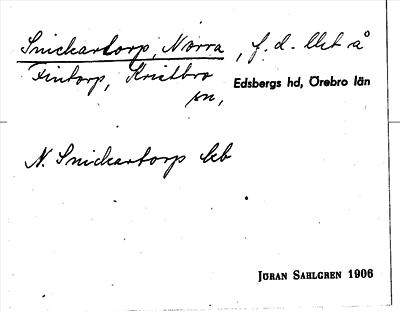 Snickartorp, Norra, f. d. lht å
Fintorp, Knistbro
sn, Edsbergs hd, Örebro län
N. Snickartorp lht
JÖRAN SAHLGREN 1906